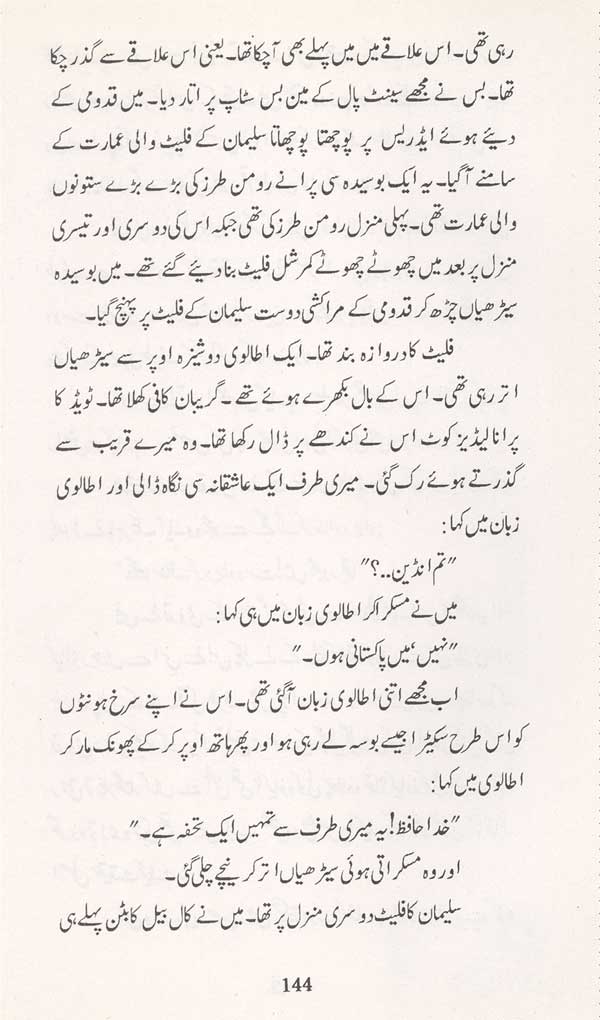 رہی تھی۔ اس علاقے میں میں پہلے بھی آ چکا تھا۔ یعنی اس علاقے سے گذر چکا
تھا۔ بس نے مجھے سینٹ پال کے مین بس سٹاپ پر اتار دیا۔ میں قدومی کے
دیئے ہوئے ایڈریس پر پوچھتا پوچھاتا سلیمان کے فلیٹ والی عمارت کے
سامنے آگیا۔ یہ ایک بوسیدہ سی پرانے رومن طرز کی بڑے بڑے ستونوں
والی عمارت تھی۔ پہلی منزل رومن طرز کی تھی جبکہ اس کی دوسری اور تیسری
منزل پر بعد میں چھوٹے چھوٹے کمرشل فلیٹ بنا دیئے گئے تھے۔ میں بوسیدہ
سیڑھیاں چڑھ کر قدومی کے مراکشی دوست سلیمان کے فلیٹ پر پہنچ گیا۔
فلیٹ کا دروازہ بند تھا۔ ایک اطالوی دوشیزہ اوپر سے سیڑھیاں
اتر رہی تھی۔ اس کے بال بکھرے ہوئے تھے۔ گریبان کافی کھلا تھا۔ ٹویڈ کا
پرانا لیڈیز کوٹ اس نے کندھے پر ڈال رکھا تھا۔ وہ میرے قریب سے
گذرتے ہوئے رک گئی۔ میری طرف ایک عاشقانہ سی نگاہ ڈالی اور اطالوی
زبان میں کہا:
"تم انڈین..؟"
میں نے مسکرا کر اطالوی زبان میں ہی کہا:
"نہیں، میں پاکستانی ہوں۔"
اب مجھے اتنی اطالوی زبان آگئی تھی۔ اس نے اپنے سرخ ہونٹوں
کو اس طرح سکیڑا جیسے بوسہ لے رہی ہو اور پھر ہاتھ اوپر کر کے پھونک مار کر
اطالوی میں کہا:
"خدا حافظ! یہ میری طرف سے تمہیں ایک تحفہ ہے۔"
اور وہ مسکراتی ہوئی سیڑھیاں اتر کر نیچے چلی گئی۔
سلیمان کا فلیٹ دوسری منزل پر تھا۔ میں نے کال بیل کا بٹن پہلے ہی
144